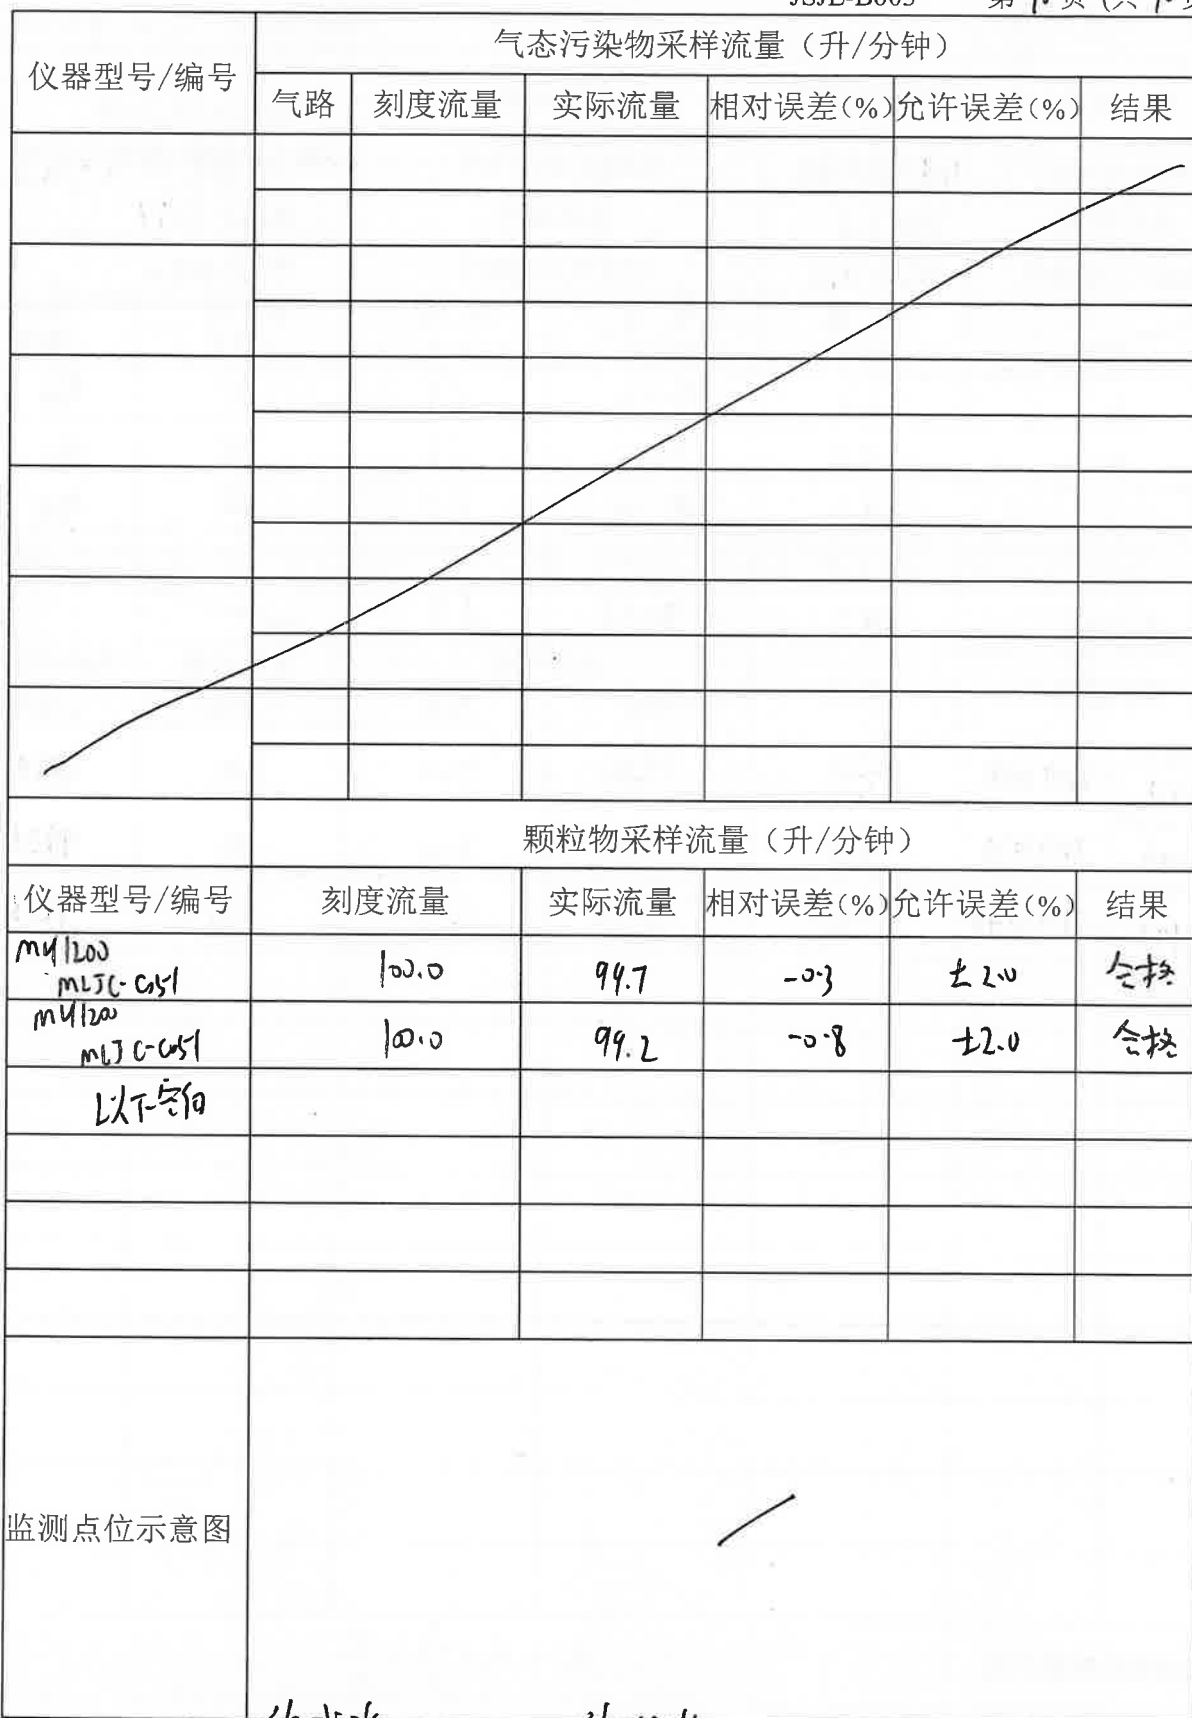 仪器型号/编号
气态污染物采样流量（升/分钟）
气路 刻度流量 实际流量 相对误差(%) 允许误差(%) 结果
颗粒物采样流量（升/分钟）
仪器型号/编号 刻度流量 实际流量 相对误差(%) 允许误差(%) 结果
MY1200
100.0 99.7 -0.3 ±2.0 合格
MY1200
100.0 99.2 -0.8 ±2.0 合格
以下空白
监测点位示意图